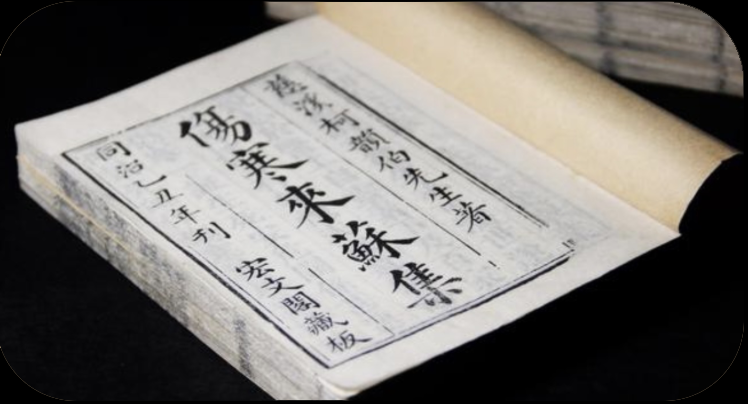 慈溪柯韻伯先生著
傷寒來蘇集
同治乙丑年刊 宏文閣藏板